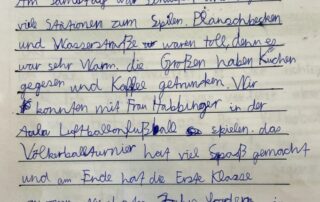 Am Samstag war
viele Stationen zum Spilen, Planschbecken
und Wasserstraße waren toll, denn es
war sehr Warm, die Großen haben Kuchen
gegesen und Kaffee getrunken. Wir
konnten mit Frau Habbinger in der
Aula Luftballonfußball spielen. das
Völkerballturnier hat viel Spaß gemacht
und am Ende hat die Erste Klasse